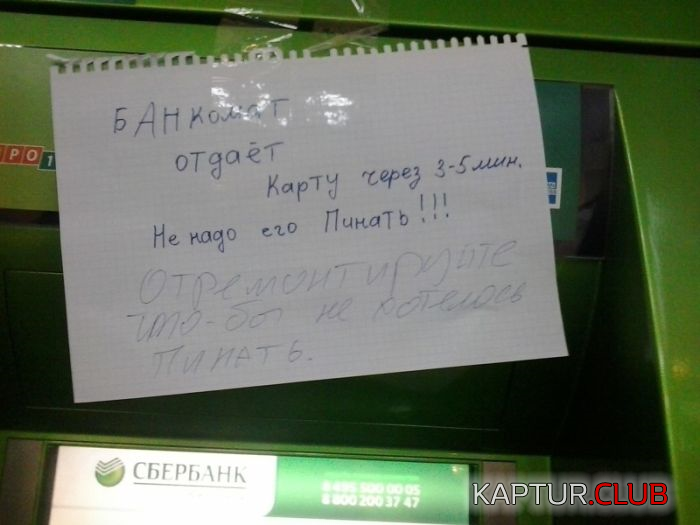 БАНкомат
отдаёт
Карту через 3-5 мин.
Не надо его Пинать!!!
Отремонтируйте
что-бы не хотелось
пинать.
РО1
СБЕРБАНК
8 495 500 00 05
8 800 200 37 47
KAPTUR.CLUB